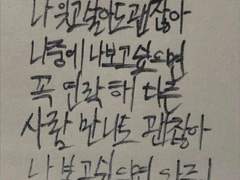 나 잊고 살아도 괜찮아
나중에 나 보고싶으면
꼭 연락해 다른
사람 만나도 괜찮아
나 보고싶으면